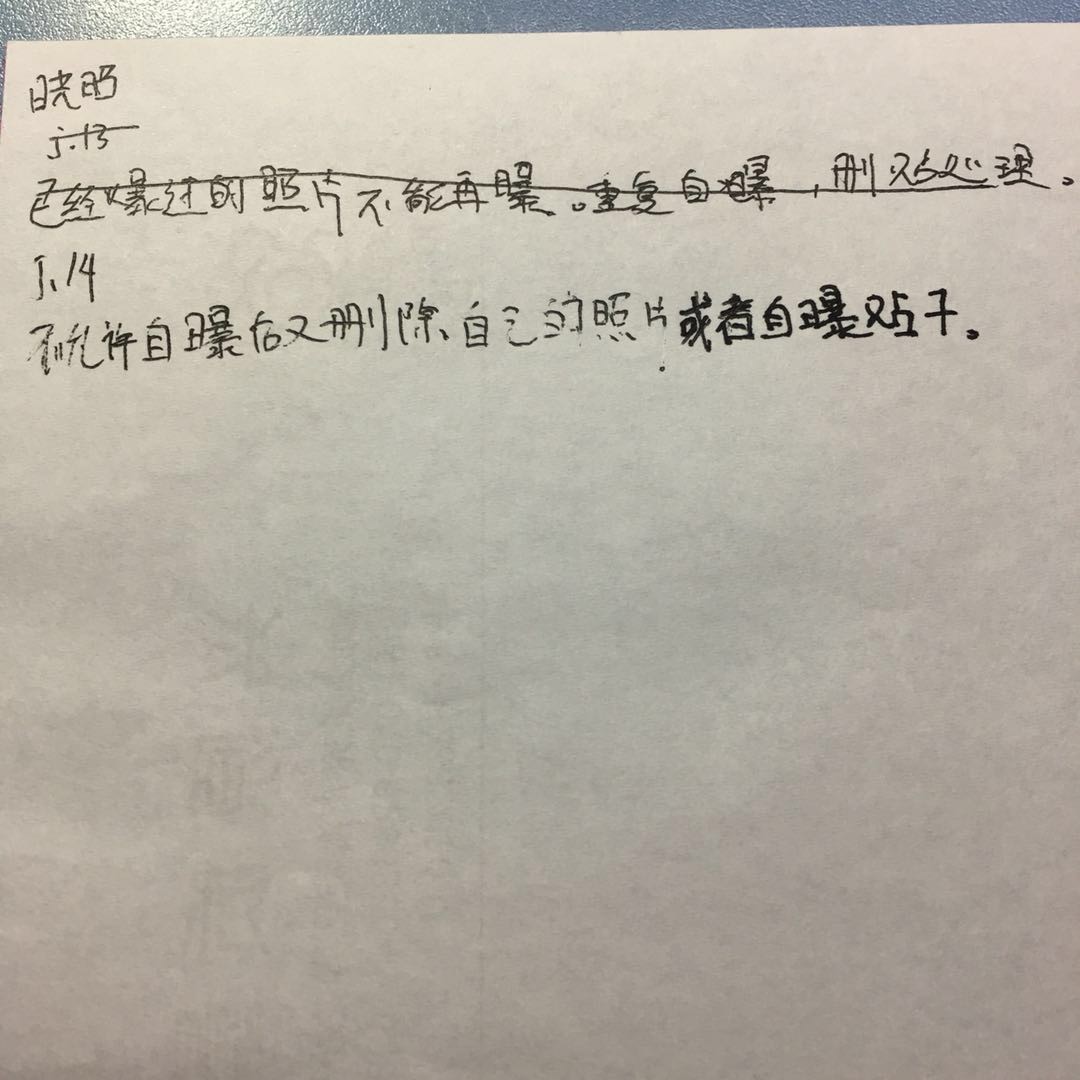 晓昭
5.13
已经爆过的照片不能再曝。重复自曝,删贴处理。
5.14
不允许自曝后又删除自己的照片或者自曝贴子。